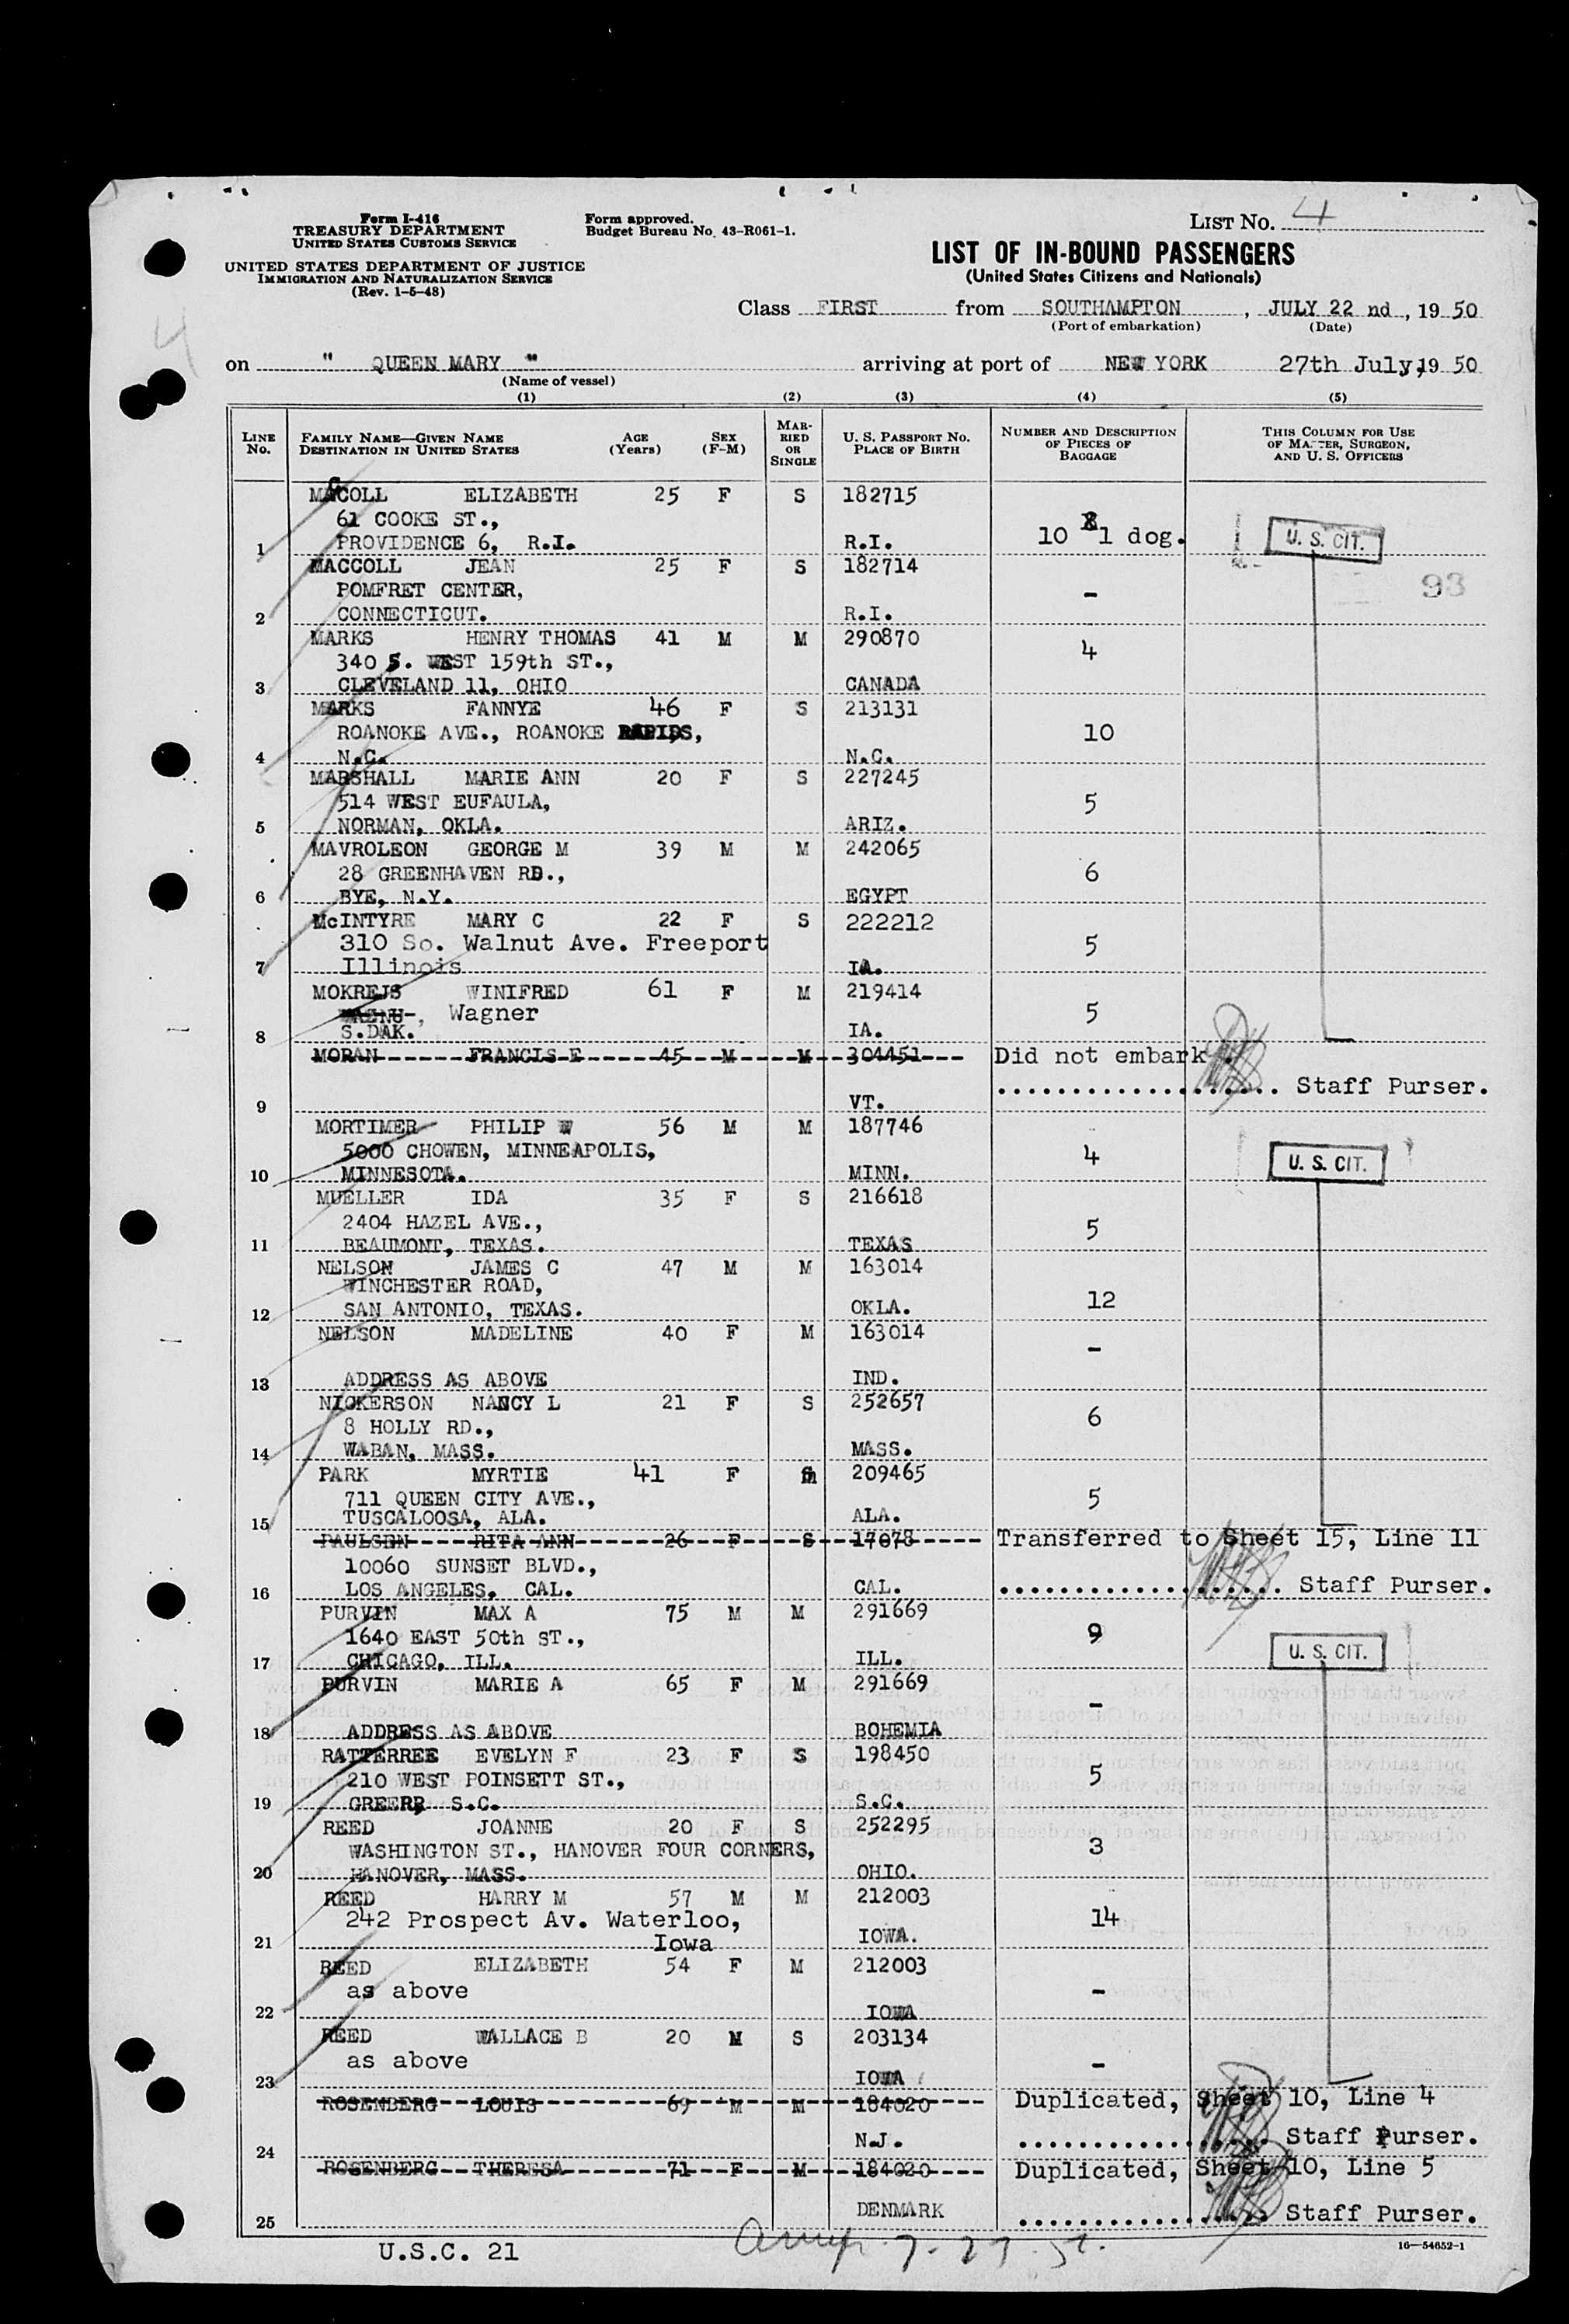 Form I-416
TREASURY DEPARTMENT
UNITED STATES CUSTOMS SERVICE
UNITED STATES DEPARTMENT OF JUSTICE
IMMIGRATION AND NATURALIZATION SERVICE
(Rev. 1-5-48)
Form approved.
Budget Bureau No. 43-R061-1.
LIST NO. 4
LIST OF IN-BOUND PASSENGERS
(United States Citizens and Nationals)
Class FIRST from SOUTHAMPTON, JULY 22 nd, 19 50
(Port of embarkation) (Date)
4
on " QUEEN MARY " arriving at port of NEW YORK 27th July, 19 50
(Name of vessel)
(1) (2) (3) (4) (5)
LINE NO. FAMILY NAME—GIVEN NAME DESTINATION IN UNITED STATES AGE (Years) SEX (F-M) MARRIED OR SINGLE U. S. PASSPORT NO. PLACE OF BIRTH NUMBER AND DESCRIPTION OF PIECES OF BAGGAGE THIS COLUMN FOR USE OF MASTER, SURGEON, AND U. S. OFFICERS
MacCOLL ELIZABETH 25 F S 182715
61 COOKE ST.,
1 PROVIDENCE 6, R.I. R.I. 10 & 1 dog. U. S. CIT.
MACCOLL JEAN 25 F S 182714
POMFRET CENTER, - 93
2 CONNECTICUT. R.I.
MARKS HENRY THOMAS 41 M M 290870
340 S. WEST 159th ST., 4
3 CLEVELAND 11, OHIO CANADA
MARKS FANNYE 46 F S 213131
ROANOKE AVE., ROANOKE RAPIDS, 10
4 N.C. N.C.
MARSHALL MARIE ANN 20 F S 227245
514 WEST EUFAULA, 5
5 NORMAN, OKLA. ARIZ.
MAVROLEON GEORGE M 39 M M 242065
28 GREENHAVEN RD., 6
6 BYE, N.Y. EGYPT
McINTYRE MARY C 22 F S 222212
310 So. Walnut Ave. Freeport 5
7 Illinois IA.
MOKREJS WINIFRED 61 F M 219414
WAGNU-, Wagner 5
8 S.DAK. IA.
MORAN FRANCIS E 45 M M 304451 Did not embark.
Staff Purser.
9 VT.
MORTIMER PHILIP W 56 M M 187746
5000 CHOWEN, MINNEAPOLIS, 4 U. S. CIT.
10 MINNESOTA. MINN.
MUELLER IDA 35 F S 216618
2404 HAZEL AVE., 5
11 BEAUMONT, TEXAS. TEXAS
NELSON JAMES C 47 M M 163014
WINCHESTER ROAD, 12
12 SAN ANTONIO, TEXAS. OKLA.
NELSON MADELINE 40 F M 163014
-
13 ADDRESS AS ABOVE IND.
NICKERSON NANCY L 21 F S 252657
8 HOLLY RD., 6
14 WABAN, MASS. MASS.
PARK MYRTIE 41 F m 209465
711 QUEEN CITY AVE., 5
15 TUSCALOOSA, ALA. ALA.
PAULSEN RITA ANN 26 F S 17078 Transferred to Sheet 15, Line 11
10060 SUNSET BLVD.,
16 LOS ANGELES, CAL. CAL. Staff Purser.
PURVIN MAX A 75 M M 291669
1640 EAST 50th ST., 9 U. S. CIT.
17 CHICAGO, ILL. ILL.
PURVIN MARIE A 65 F M 291669
-
18 ADDRESS AS ABOVE BOHEMIA
RATTERREE EVELYN F 23 F S 198450
210 WEST POINSETT ST., 5
19 GREER, S.C. S.C.
REED JOANNE 20 F S 252295
WASHINGTON ST., HANOVER FOUR CORNERS, 3
20 HANOVER, MASS. OHIO.
REED HARRY M 57 M M 212003
242 Prospect Av. Waterloo, 14
21 Iowa IOWA.
REED ELIZABETH 54 F M 212003
as above -
22 IOWA
REED WALLACE B 20 M S 203134
as above -
23 IOWA
ROSENBERG LOUIS 69 M M 184020 Duplicated, Sheet 10, Line 4
24 N.J. Staff Purser.
ROSENBERG THERESA 71 F M 184020 Duplicated, Sheet 10, Line 5
25 DENMARK Staff Purser.
U.S.C. 21
7-27-50.
16—54652-1